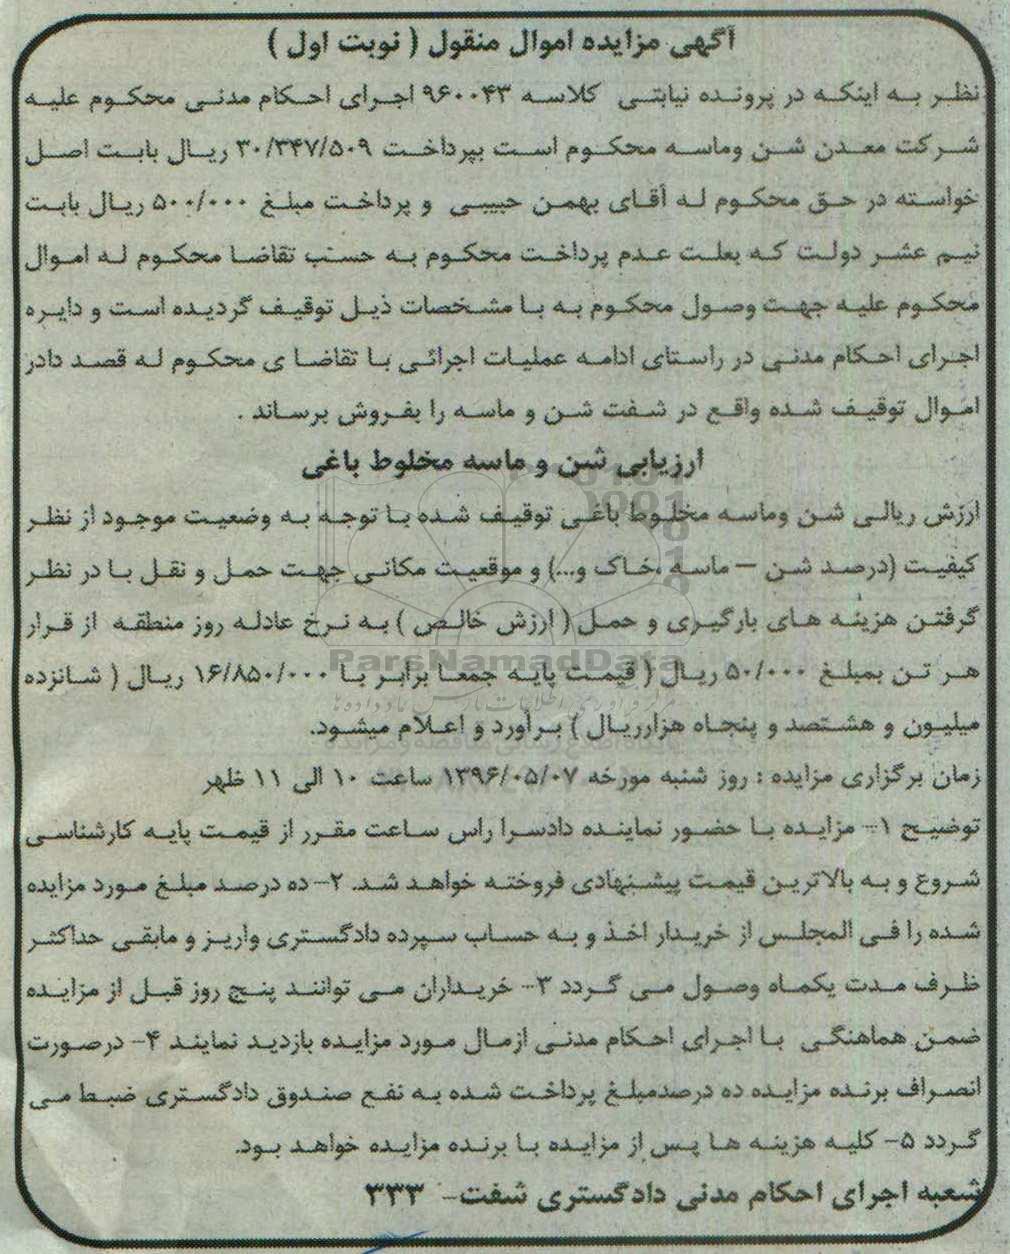 آگهی مزایده اموال منقول ( نوبت اول )
نظر به اینکه در پرونده نیابتی کلاسه ۹۶۰۰۴۳ اجرای احکام مدنی محکوم علیه
شرکت معدن شن وماسه محکوم است بپرداخت ۳۰/۳۴۷/۵۰۹ ریال بابت اصل
خواسته در حق محکوم له آقای بهمن حبیبی و پرداخت مبلغ ۵۰۰/۰۰۰ ریال بابت
نیم عشر دولت که بعلت عدم پرداخت محکوم به حسب تقاضا محکوم له اموال
محکوم علیه جهت وصول محکوم به با مشخصات ذیل توقیف گردیده است و دایره
اجرای احکام مدنی در راستای ادامه عملیات اجرائی با تقاضا ی محکوم له قصد دادر
اموال توقیف شده واقع در شفت شن و ماسه را بفروش برساند .
ارزیابی شن و ماسه مخلوط باغی
ارزش ریالی شن وماسه مخلوط باغی توقیف شده با توجه به وضعیت موجود از نظر
کیفیت (درصد شن – ماسه ،خاک و...) و موقعیت مکانی جهت حمل و نقل با در نظر
گرفتن هزینه های بارگیری و حمل ( ارزش خالص ) به نرخ عادله روز منطقه از قرار
هر تن بمبلغ ۵۰/۰۰۰ ریال ( قیمت پایه جمعا برابر با ۱۶/۸۵۰/۰۰۰ ریال ( شانزده
میلیون و هشتصد و پنجاه هزارریال ) برآورد و اعلام میشود.
زمان برگزاری مزایده : روز شنبه مورخه ۱۳۹۶/۰۵/۰۷ ساعت ۱۰ الی ۱۱ ظهر
توضیح ۱- مزایده با حضور نماینده دادسرا راس ساعت مقرر از قیمت پایه کارشناسی
شروع و به بالاترین قیمت پیشنهادی فروخته خواهد شد. ۲-ده درصد مبلغ مورد مزایده
شده را فی المجلس از خریدار اخذ و به حساب سپرده دادگستری واریز و مابقی حداکثر
ظرف مدت یکماه وصول می گردد ۳- خریداران می توانند پنج روز قبل از مزایده
ضمن هماهنگی با اجرای احکام مدنی ازمال مورد مزایده بازدید نمایند ۴- درصورت
انصراف برنده مزایده ده درصدمبلغ پرداخت شده به نفع صندوق دادگستری ضبط می
گردد ۵- کلیه هزینه ها پس از مزایده با برنده مزایده خواهد بود.
شعبه اجرای احکام مدنی دادگستری شفت- ۳۳۳
ParsNamadData